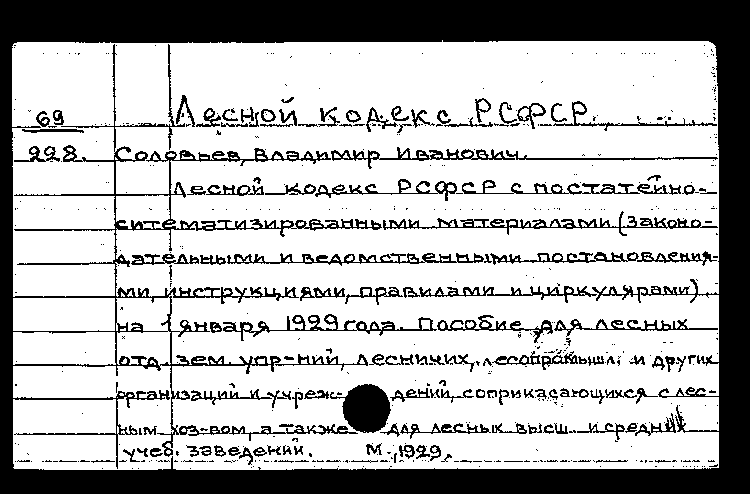 Лесной кодекс РСФСР
69
228. Соловьев, Владимир Иванович.
Лесной кодекс РСФСР с постатейно-
ситематизированными материалами (законо-
дательными и ведомственными постановления-
ми, инструкциями, правилами и циркулярами)
на 1 января 1929 года. Пособие для лесных
отд. зем. упр-ний, лесничих, лесопромышл. и других
организаций и учреждений, соприкасающихся с лес-
ным хоз-вом, а также для лесных высш. и средних
учеб. заведений. М., 1929.